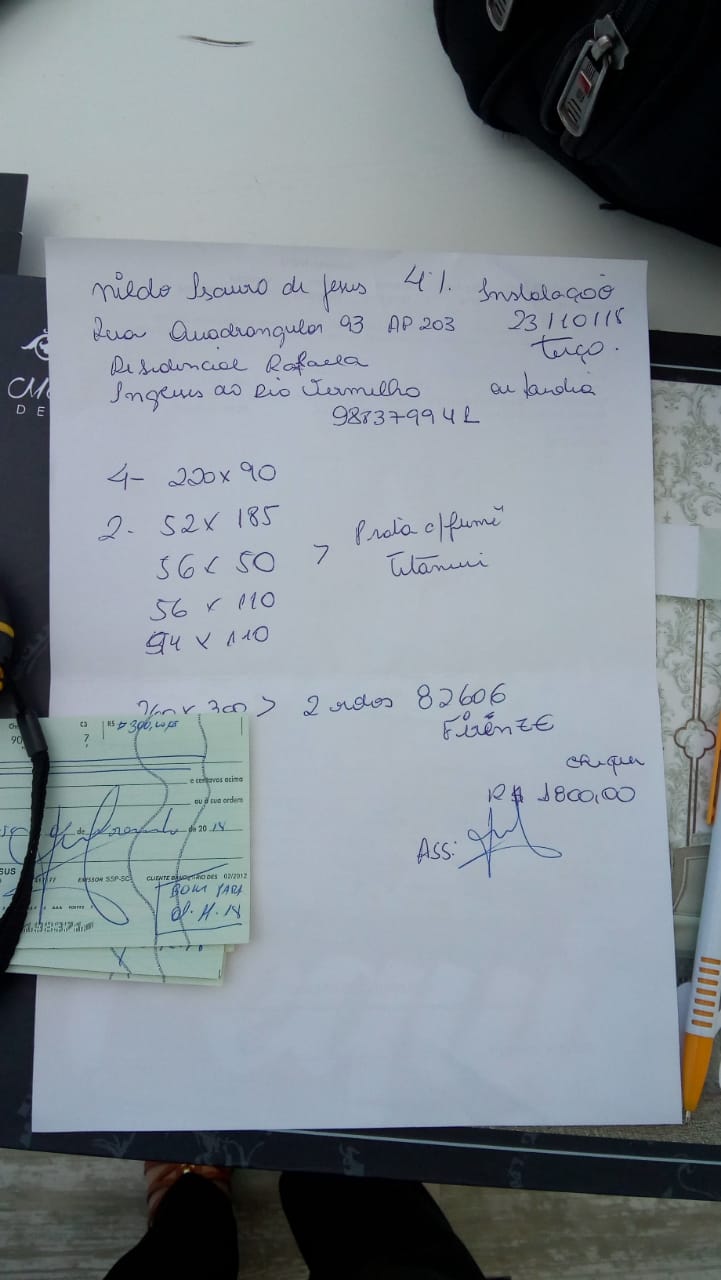 Nildo Isauro de Jesus 4% Instalação
Rua Quadrangular 93 AP 203 23/10/18
Residencial Rafaela Terça.
Ingleses do Rio Vermelho ou Sandra
988379942
4- 220x90
2- 52x185
56x50 > Prata c/fumê
Titânium
56x110
94x110
260x300 > 2 rolos 82606
Firenze
cheque
R$ 1800,00
Ass:
C3
R$
300,00
?
e centavos acima
ou à sua ordem
de
de 20 18
EMISSOR SSP-SC
CLIENTE BANCÁRIO DES 02/2012
BOM PARA
DE